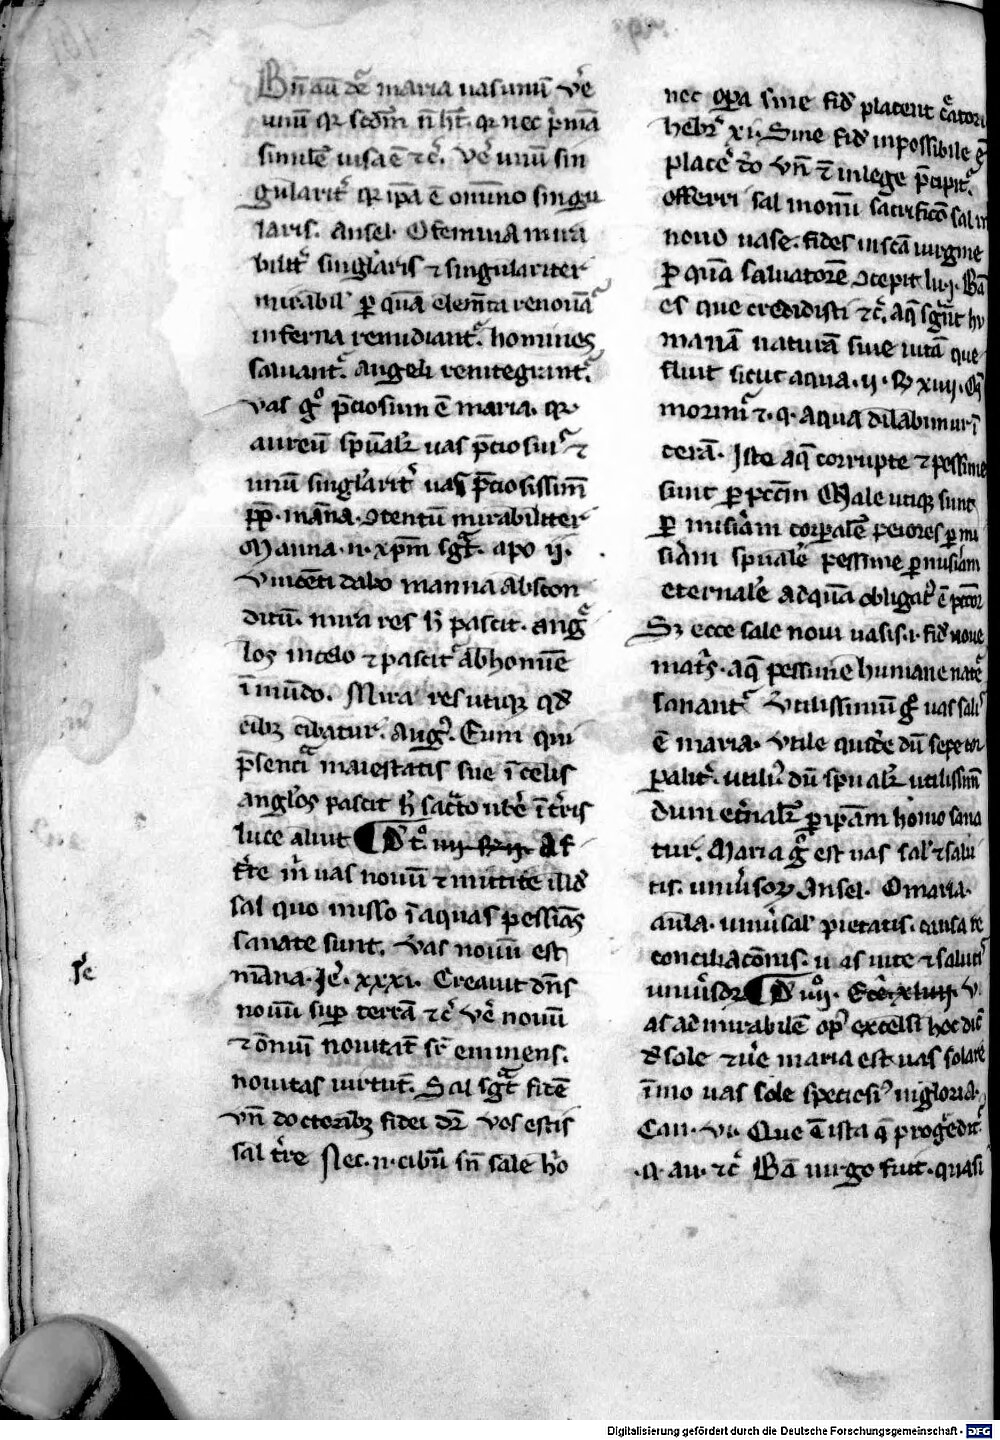 Bn̄ aū dr̄ maria vas unū ve͛
unū qr sc̄dm̄ n̄ hꝫ. qr nec p͛mā
simile͛ visa ē ⁊c͛. ve͛ unū sin
gularit͛ qr ip̄a ē omnino singu
laris. Ansel. O femina mira
bilit͛ singlaris ⁊ singulariter
mirabil᷒ ꝑ quā elem̄ta renovāt͛
inferna remediant͛. homines
salvant͛. Angeli reintegrant͛.
vas g° p̄ciosum ē maria. qr
aureū sp̄ualr vas p̄ciosiꝰ ⁊
unū singlarit͛ vas p̄ciosissim̄
pp̄. māna. ꝯtentū mirabiliter
Manna .n. xp̄m sḡt. apo ii.
Vincēti dabo manna abscon
ditū. mira res h̄ pascit. ang͛
los in celo ⁊ pascit᷒ ab homīe
ī mūdo. Mira res utiqꝫ qd̄
cibꝫ cibatur. Augꝰ. Eum qui
p̄sentia maiestatis sue ī celis
angl̄os pascit h̄ sac̄to ube͛ ī t͛ris
luce aluit ¶ D t° iiii. Reg. ii. Af
fe͛te m̄ vas novū ⁊ mittite illd̄
sal quo misso ī aquas pessīas
sanate sunt. Vas novū est
māria. Je͛. xxxi. Creavit dn̄s
novū sup terrā ⁊c͛ ve͛ novū
⁊ ōmiū novitatū sr̄ eminens.
novitas virtut̄. Sal sḡt fidē
vn̄ doctoribꝫ fidei dr̄ vos estis
sal t͛re Nec .n. cibū sn̄ sale h°
Je͛
nec op̄a sine fid̄ placent c͛atori
hebr͛ xi. Sine fid̄ inpossibile ē
place͛ d̄o vn̄ ⁊ in lege p̄cipit͛
offerri sal in om̄ sacrificō sal in
novo vase. fides in scā virgine
ꝑ quā salvatorē ꝯcepit lu. i. B̄a
es que credidisti ⁊c͛. aq̄ sḡnt hu
manā naturā sive vitā que
fluit sicut aqua. ii. R͛ xiiii. Oēs
morim᷒ ⁊. q. aqua dilabimur ī
terā. Iste aq̄ corrupte ⁊ pessime
sunt ꝑ pccm̄ Male utiqꝫ sunt
ꝑ miseiam corp̄alē peiores ꝑ mi
siam spūalē pessime ꝑ miseiam
eternalē ad quā obligat᷒ ē pctor
Sꝫ ecce sale novi vasis .i. fid̄ nove
mat͛s. aq̄ pessime humane nat͛e
sanant͛. Utilissimū g° vas salis
ē maria. Utile quide͛ dū se tem
palit͛. utiliꝰ dū spūalr utilissim̄
dum et͛nalr ꝑ ip̄am homo sana
tur. Maria g° est vas sal᷒ ⁊ salu
tis. univ͛soꝝ Ansel. O maria.
aula. univ͛sal᷒ pietatis. causa re
conciliacōnis. vas vite ⁊ salutis
univ͛soꝝ ¶ D iiii°. Ecc͛e. xliii. V
as admirabile op᷒ excelsi hoc dic̄
d̄ sole ⁊ ve͛ maria est vas solare
īmo vas sole speciosiꝰ in gloria.
Can. vi. Que ē ista q̄ prog͛edit͛
.q. au. ⁊c͛ B̄a virgo fuit. quasi
Digitalisierung gefördert durch die Deutsche Forschungsgemeinschaft - DFG